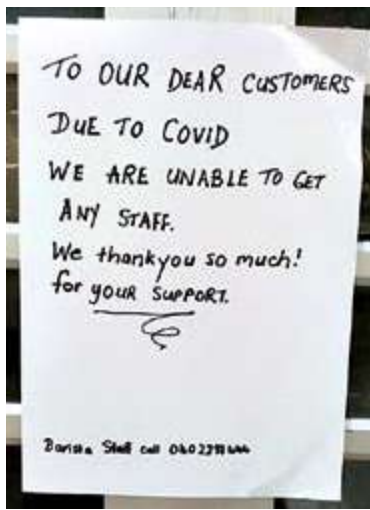 TO OUR DEAR CUSTOMERS
DUE TO COVID
WE ARE UNABLE TO GET
ANY STAFF.
We thankyou so much!
for YOUR SUPPORT.
Barista Staff call